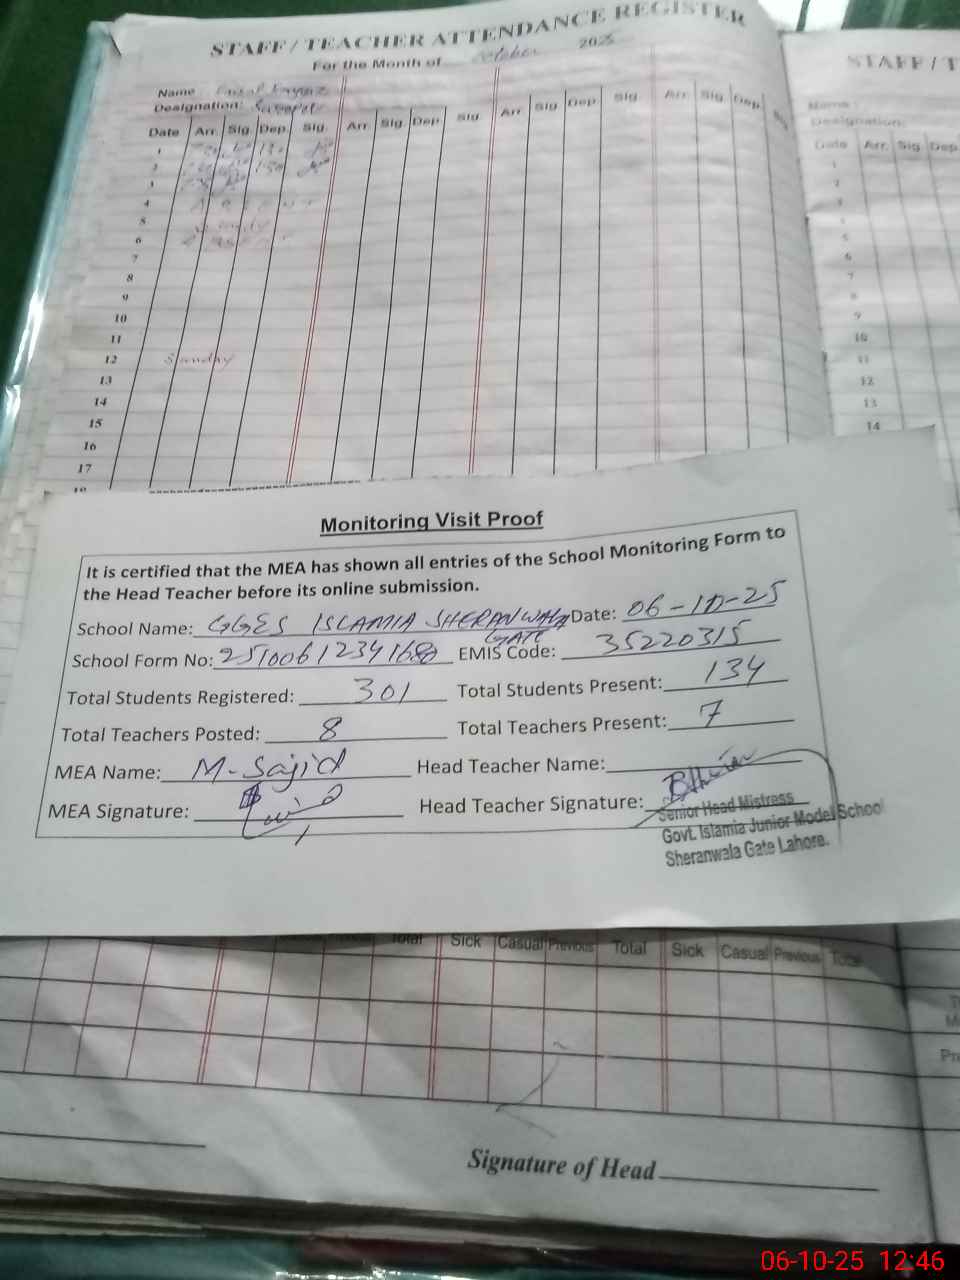 STAFF / TEACHER ATTENDANCE REGISTER
For the Month of October 2025
Name
Designation:
Date Arr. Sig. Dep. Sig. Arr. Sig. Dep. Sig. Arr. Sig. Dep. Sig. Arr. Sig. Dep.
1
2
3
4
5 Sunday
6
7
8
9
10
11
12 Sunday
13
14
15
16
17
18
STAFF / T
Name :
Designation:
Date Arr. Sig. Dep
1
2
3
4
5
6
7
8
9
10
11
12
13
14
Monitoring Visit Proof
It is certified that the MEA has shown all entries of the School Monitoring Form to
the Head Teacher before its online submission.
School Name: GGES ISLAMIA SHERANWALA GATE Date: 06-10-25
School Form No: EMIS Code: 35220315
Total Students Registered: 301 Total Students Present: 134
Total Teachers Posted: 8 Total Teachers Present: 7
MEA Name: M-Sajid Head Teacher Name:
MEA Signature: Head Teacher Signature:
Senior Head Mistress
Govt. Islamia Junior Model School
Sheranwala Gate Lahore.
Total Sick Casual Previous Total Sick Casual Previous Total
Signature of Head
06-10-25 12:46